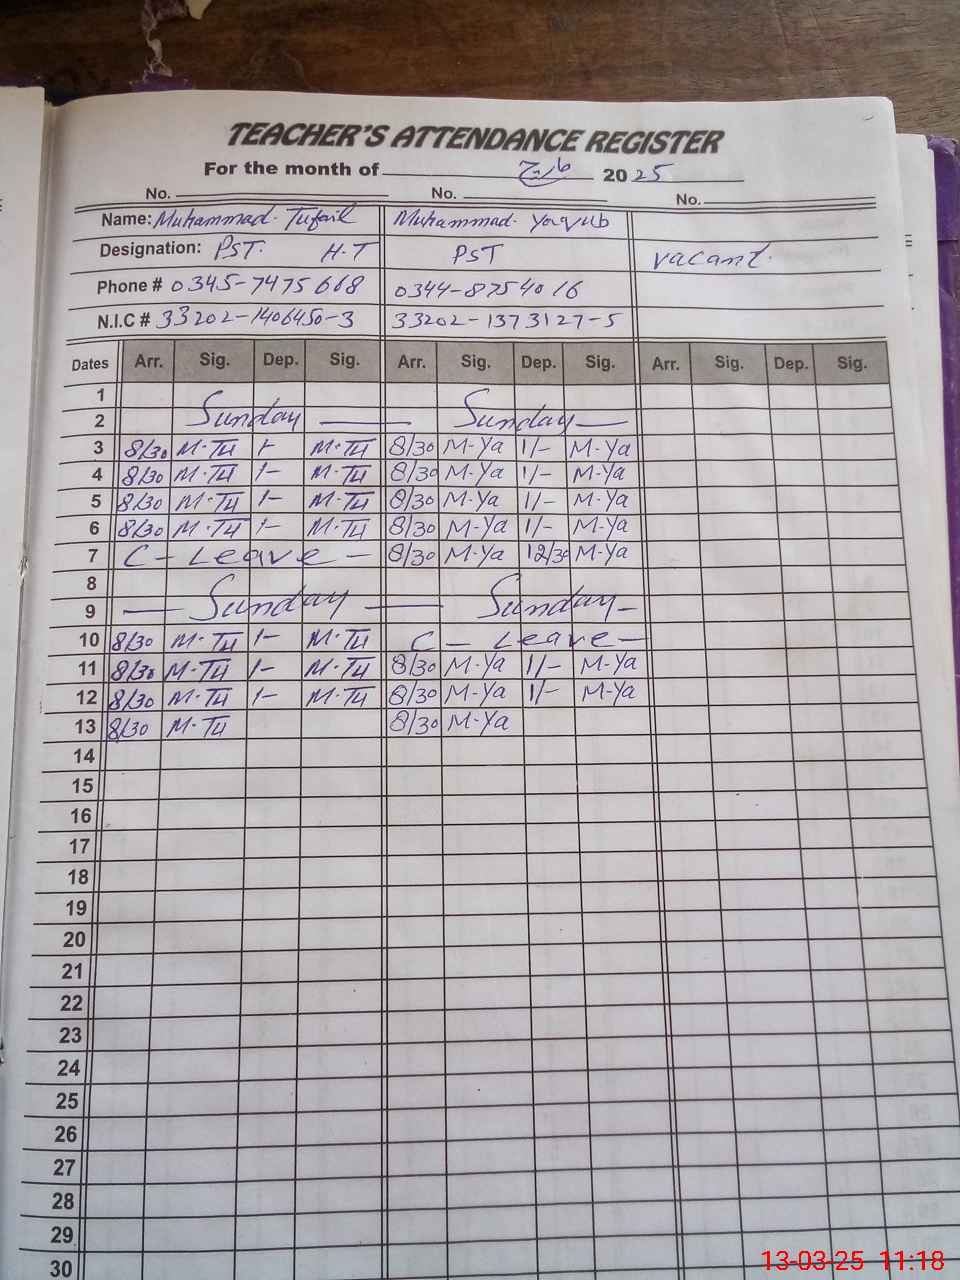 TEACHER'S ATTENDANCE REGISTER
For the month of مارچ 2025
No. No. No.
Name: Muhammad. Tufail Muhammad. Yaqub
Designation: PST. H.T PST vacant.
Phone # 0345-7475668 0344-8754016
N.I.C # 33202-1406450-3 33202-1373127-5
Dates Arr. Sig. Dep. Sig. Arr. Sig. Dep. Sig. Arr. Sig. Dep. Sig.
1
2 Sunday — Sunday —
3 8/30 M.TU 1- M.TU 8/30 M-Ya 1/- M-Ya
4 8/30 M.TU 1- M.TU 8/30 M-Ya 1/- M-Ya
5 8/30 M.TU 1- M.TU 8/30 M-Ya 1/- M-Ya
6 8/30 M.TU 1- M.TU 8/30 M-Ya 1/- M-Ya
7 C - Leave - 8/30 M-Ya 12/30 M-Ya
8
9 — Sunday — Sunday -
10 8/30 M.TU 1- M.TU C - Leave -
11 8/30 M.TU 1- M.TU 8/30 M-Ya 1/- M-Ya
12 8/30 M.TU 1- M.TU 8/30 M-Ya 1/- M-Ya
13 8/30 M.TU 8/30 M-Ya
14
15
16
17
18
19
20
21
22
23
24
25
26
27
28
29
30
13-03-25 11:18